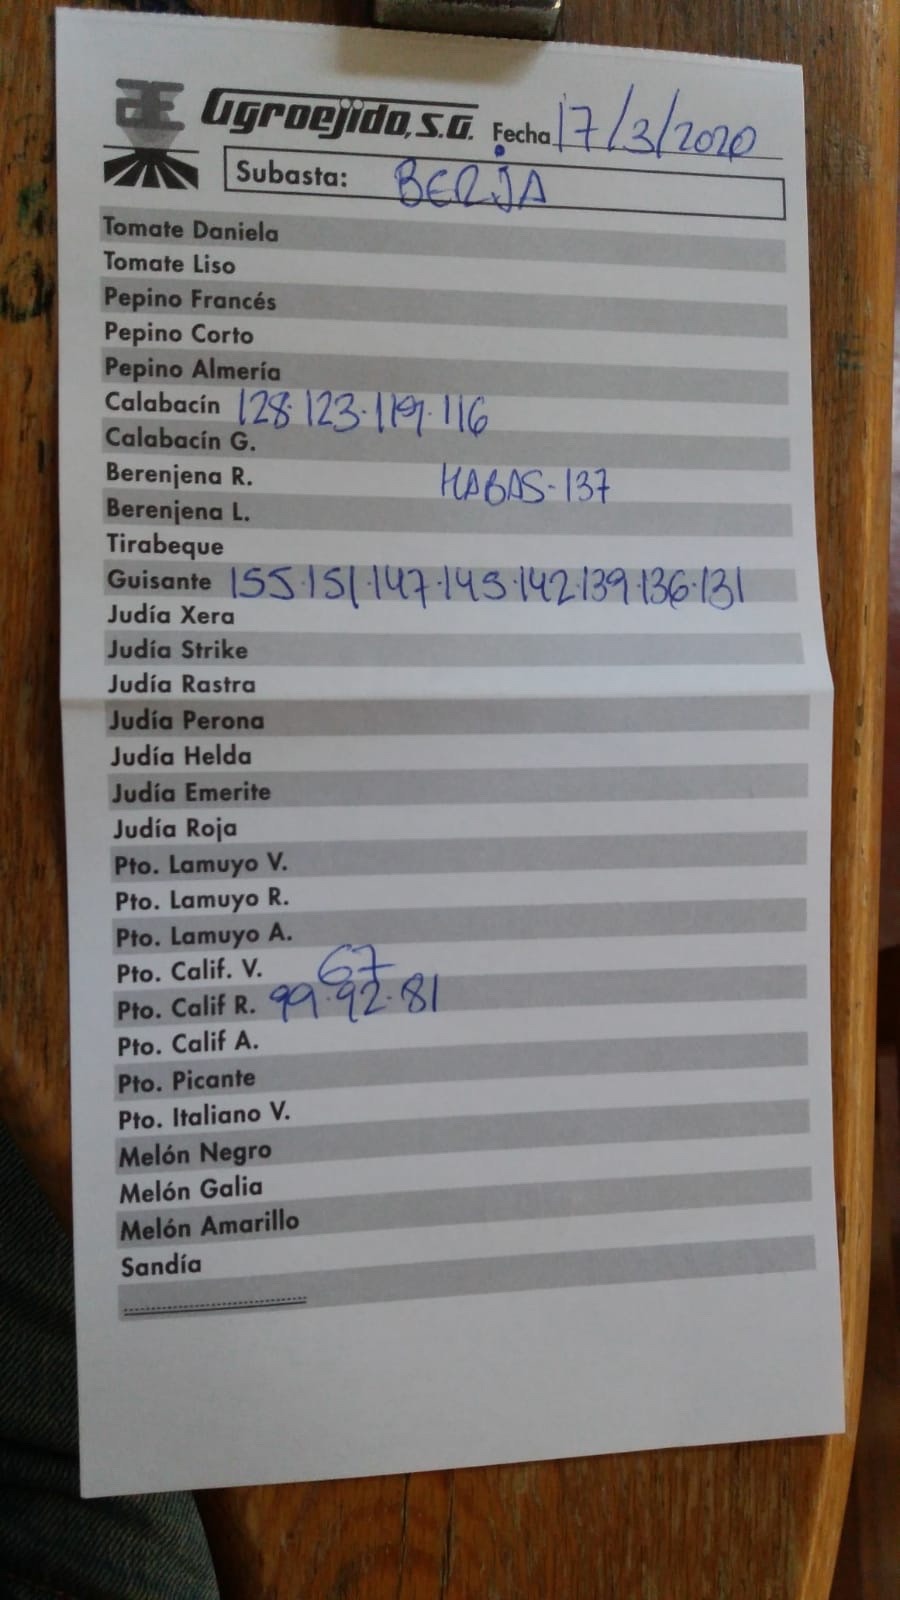 Agroejido, S.A. Fecha 17/3/2020
Subasta: BERJA
Tomate Daniela
Tomate Liso
Pepino Francés
Pepino Corto
Pepino Almería
Calabacín 128·123·119·116
Calabacín G.
Berenjena R. HABAS-137
Berenjena L.
Tirabeque
Guisante 155·151·147·145·142·139·136·131
Judía Xera
Judía Strike
Judía Rastra
Judía Perona
Judía Helda
Judía Emerite
Judía Roja
Pto. Lamuyo V.
Pto. Lamuyo R.
Pto. Lamuyo A.
Pto. Calif. V. 67
Pto. Calif R. 99·92·81
Pto. Calif A.
Pto. Picante
Pto. Italiano V.
Melón Negro
Melón Galia
Melón Amarillo
Sandía